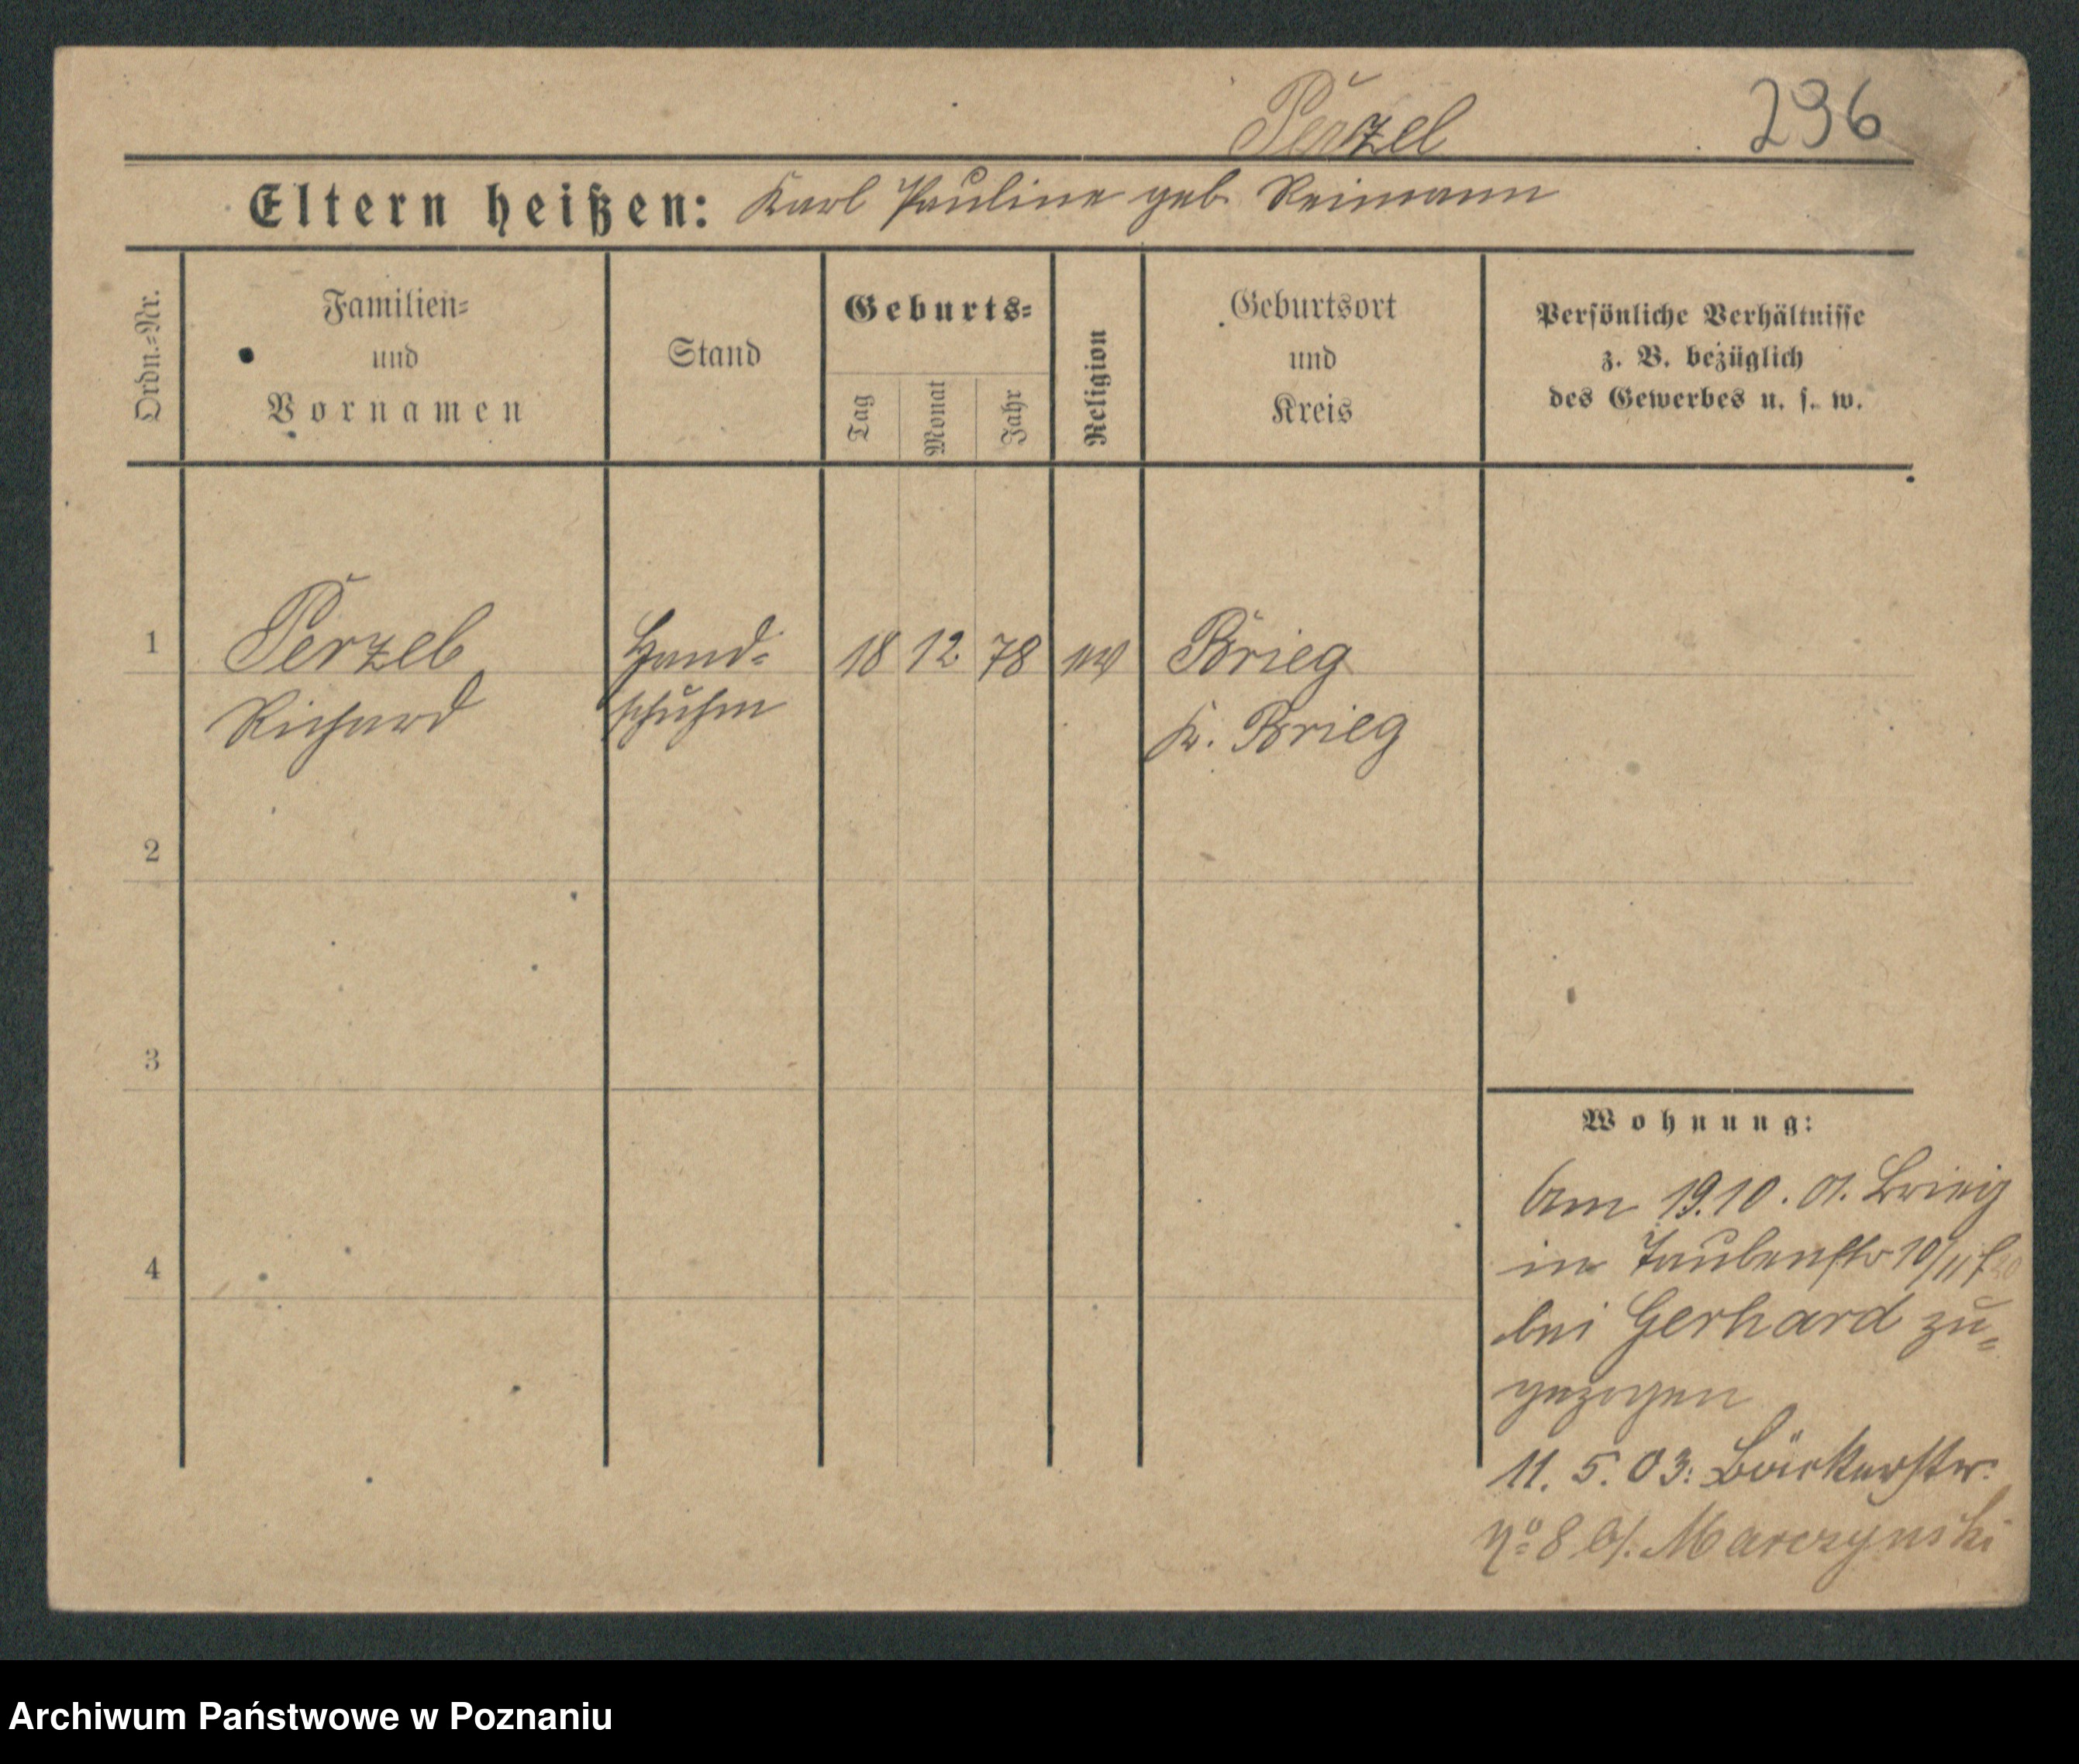 Perzel 296
Eltern heißen: Karl Pauline geb. Reimann
Ordn.-Nr.
Familien-
und
Vornamen
Stand
Geburts-
Tag
Monat
Jahr
Religion
Geburtsort
und
Kreis
Persönliche Verhältnisse
z. B. bezüglich
des Gewerbes u. s. w.
1 Perzel Hand- 18 12 78 Brieg
Richard schuhm K. Brieg
2
3
4
Wohnung:
Am 19.10.01. Brieg
in Taubenstr 10/11
bei Gerhard zu-
gezogen
11. 5. 03: Bäckerstr.
No 8 b/. Marczynski
Archiwum Państwowe w Poznaniu